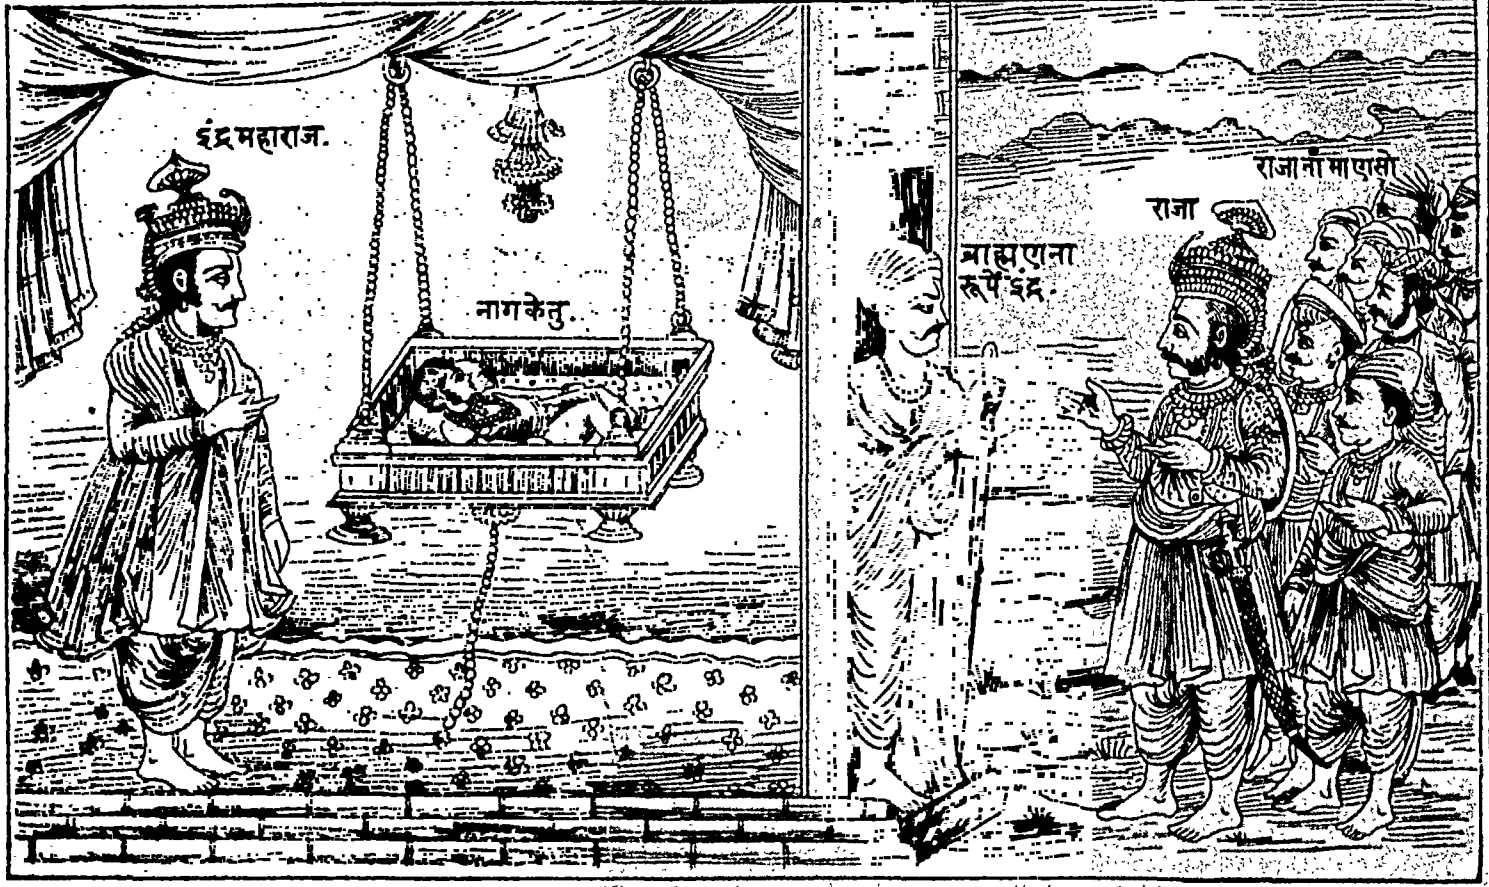 इंद्रमहाराज.
नागकेतु.
ब्राह्मणना
रूपें इंद्र.
राजा
राजानां माणसो